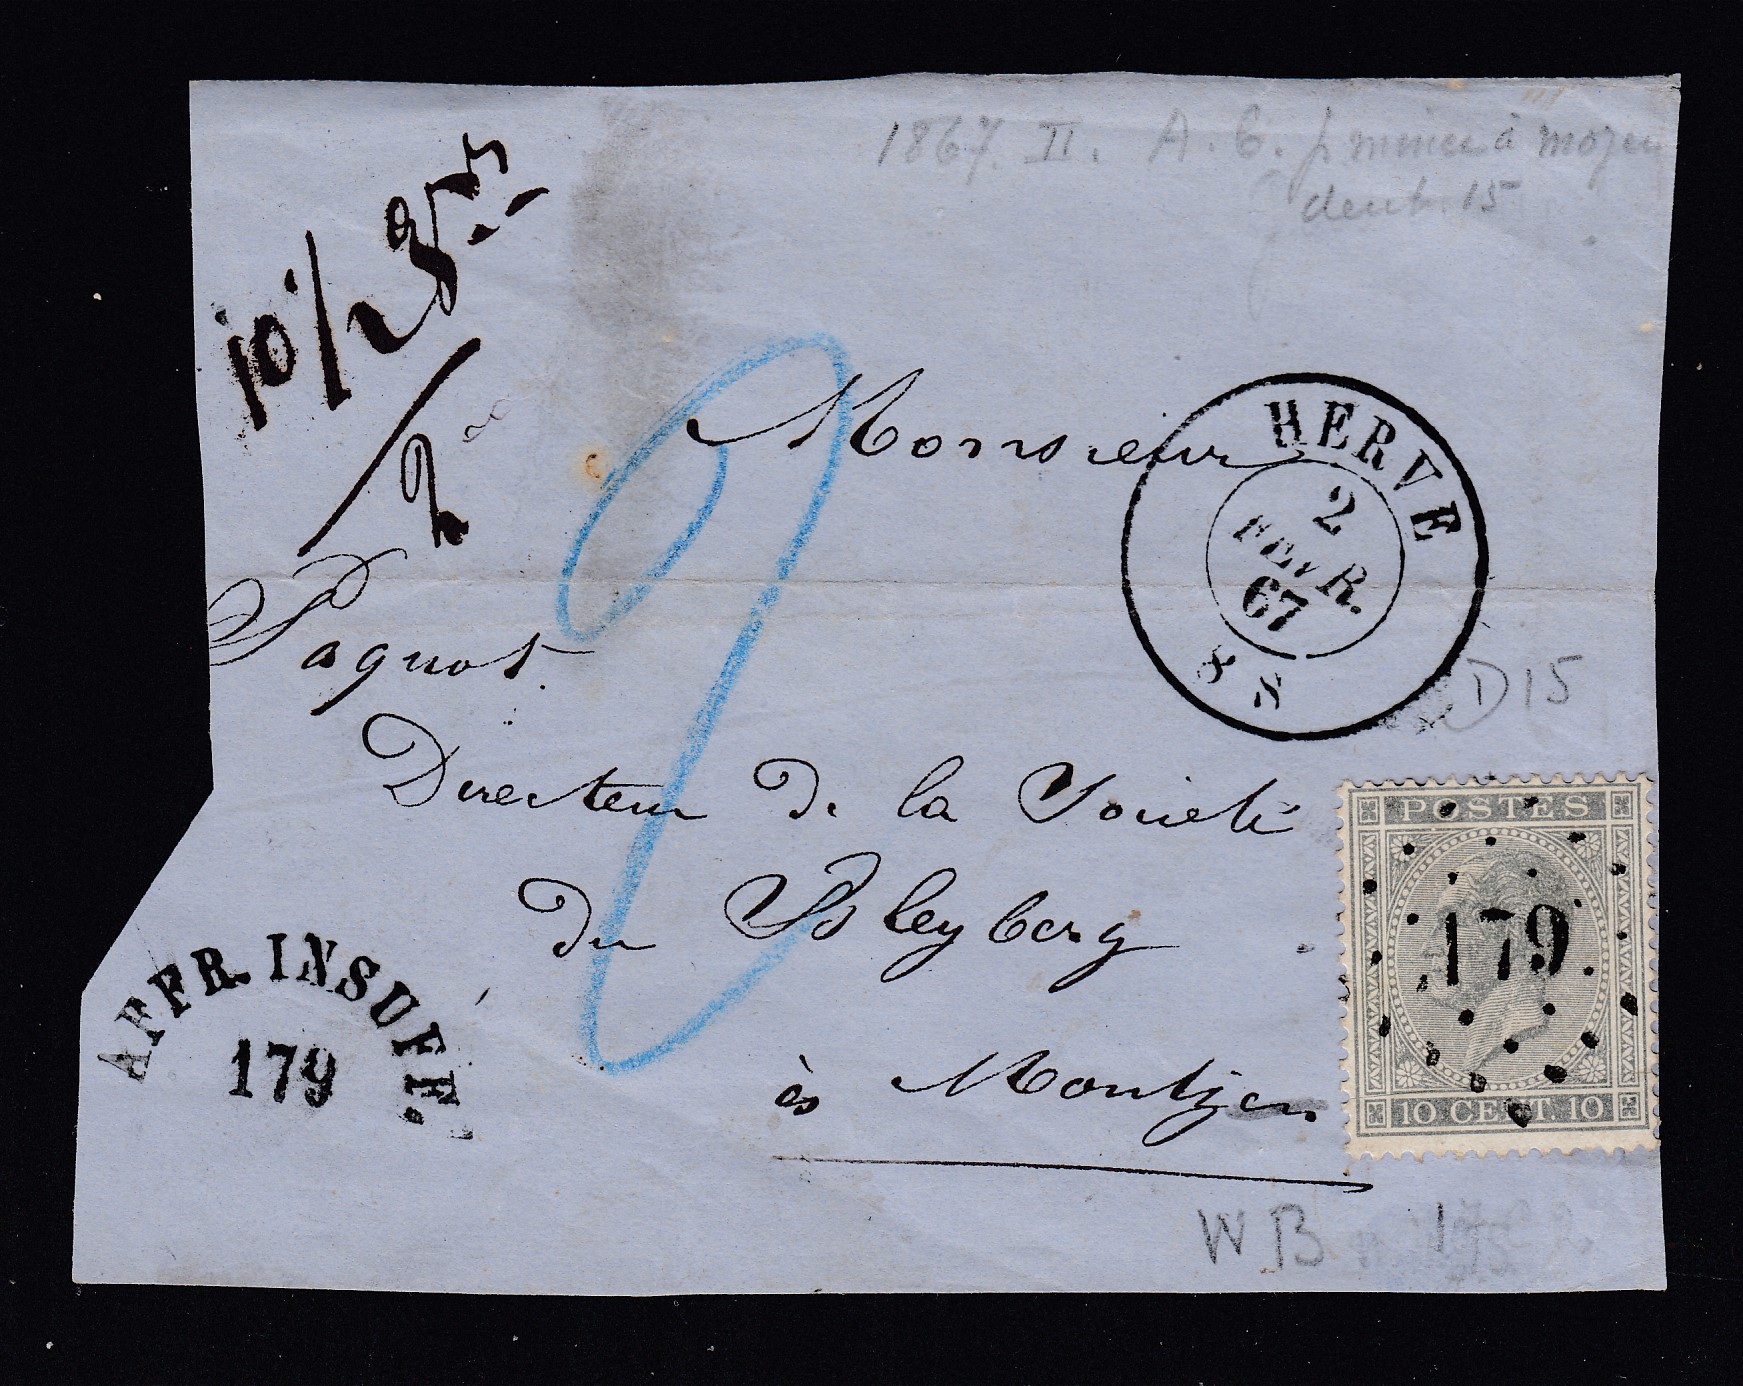 1867. II. A. 6. p mince à moyen
dent. 15
10 1/2 grs
2
Monsieur
HERVE
2
FEVR.
67
8 S
Paquot.
D15
Directeur de la Société
du Bleyberg
POSTES
179
10 CENT. 10
AFFR. INSUFF.
179
à Montzen
WB